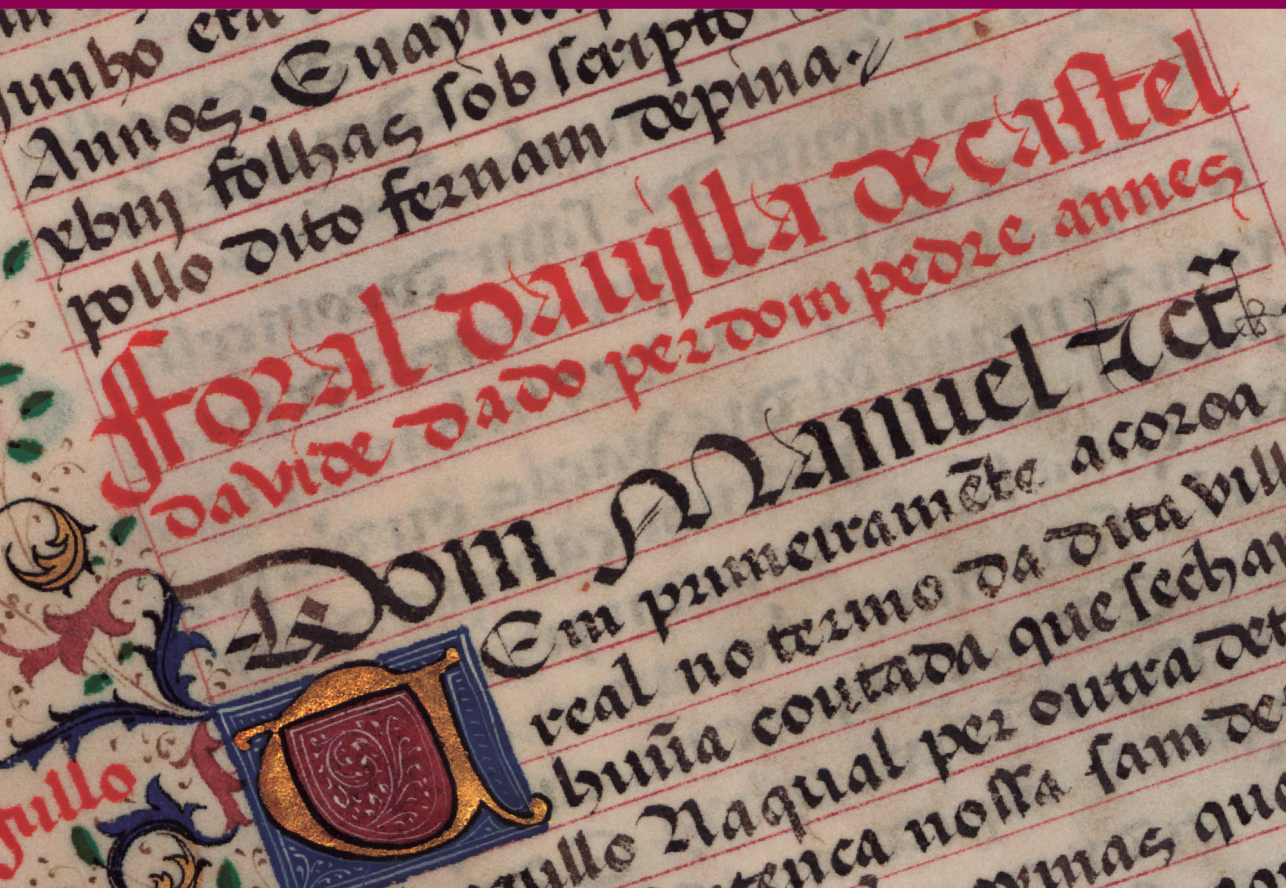 Junho era
Annos. E uay
xbiij folhas sob scripto
pollo dito fernam depina.
fforal dauijlla de castel
davide dado per dom pedre annes
Dom Manuel ⁊ ct̃
Em primeiramẽte acoroa
real no termo da dita vill
hũua coutada que sechan
gullo Naqual per outra det
tença nossa sam de
ormas que
gullo